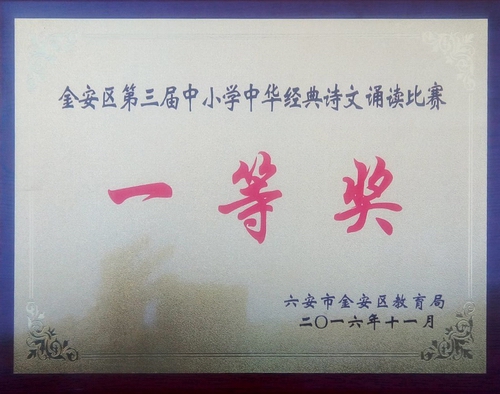 金安区第三届中小学中华经典诗文诵读比赛
一等奖
六安市金安区教育局
二〇一六年十一月